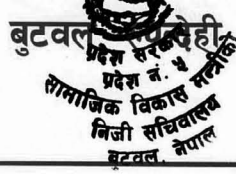 बुटवल, रुपन्देही
प्रदेश सरकार
प्रदेश नं. ५
सामाजिक विकास मन्त्रीको
निजी सचिवालय
बुटवल, नेपाल